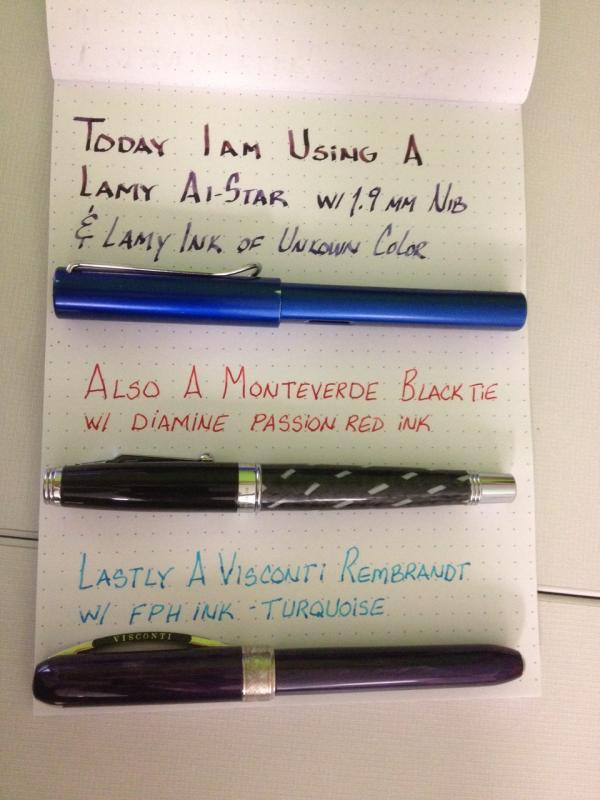 Today I am Using A
Lamy Al-Star w/ 1.9 mm Nib
& Lamy Ink of Unkown Color
Also A Monteverde Black Tie
w/ Diamine Passion Red ink
Lastly A Visconti Rembrandt
w/ FPH ink - Turquoise
VISCONTI